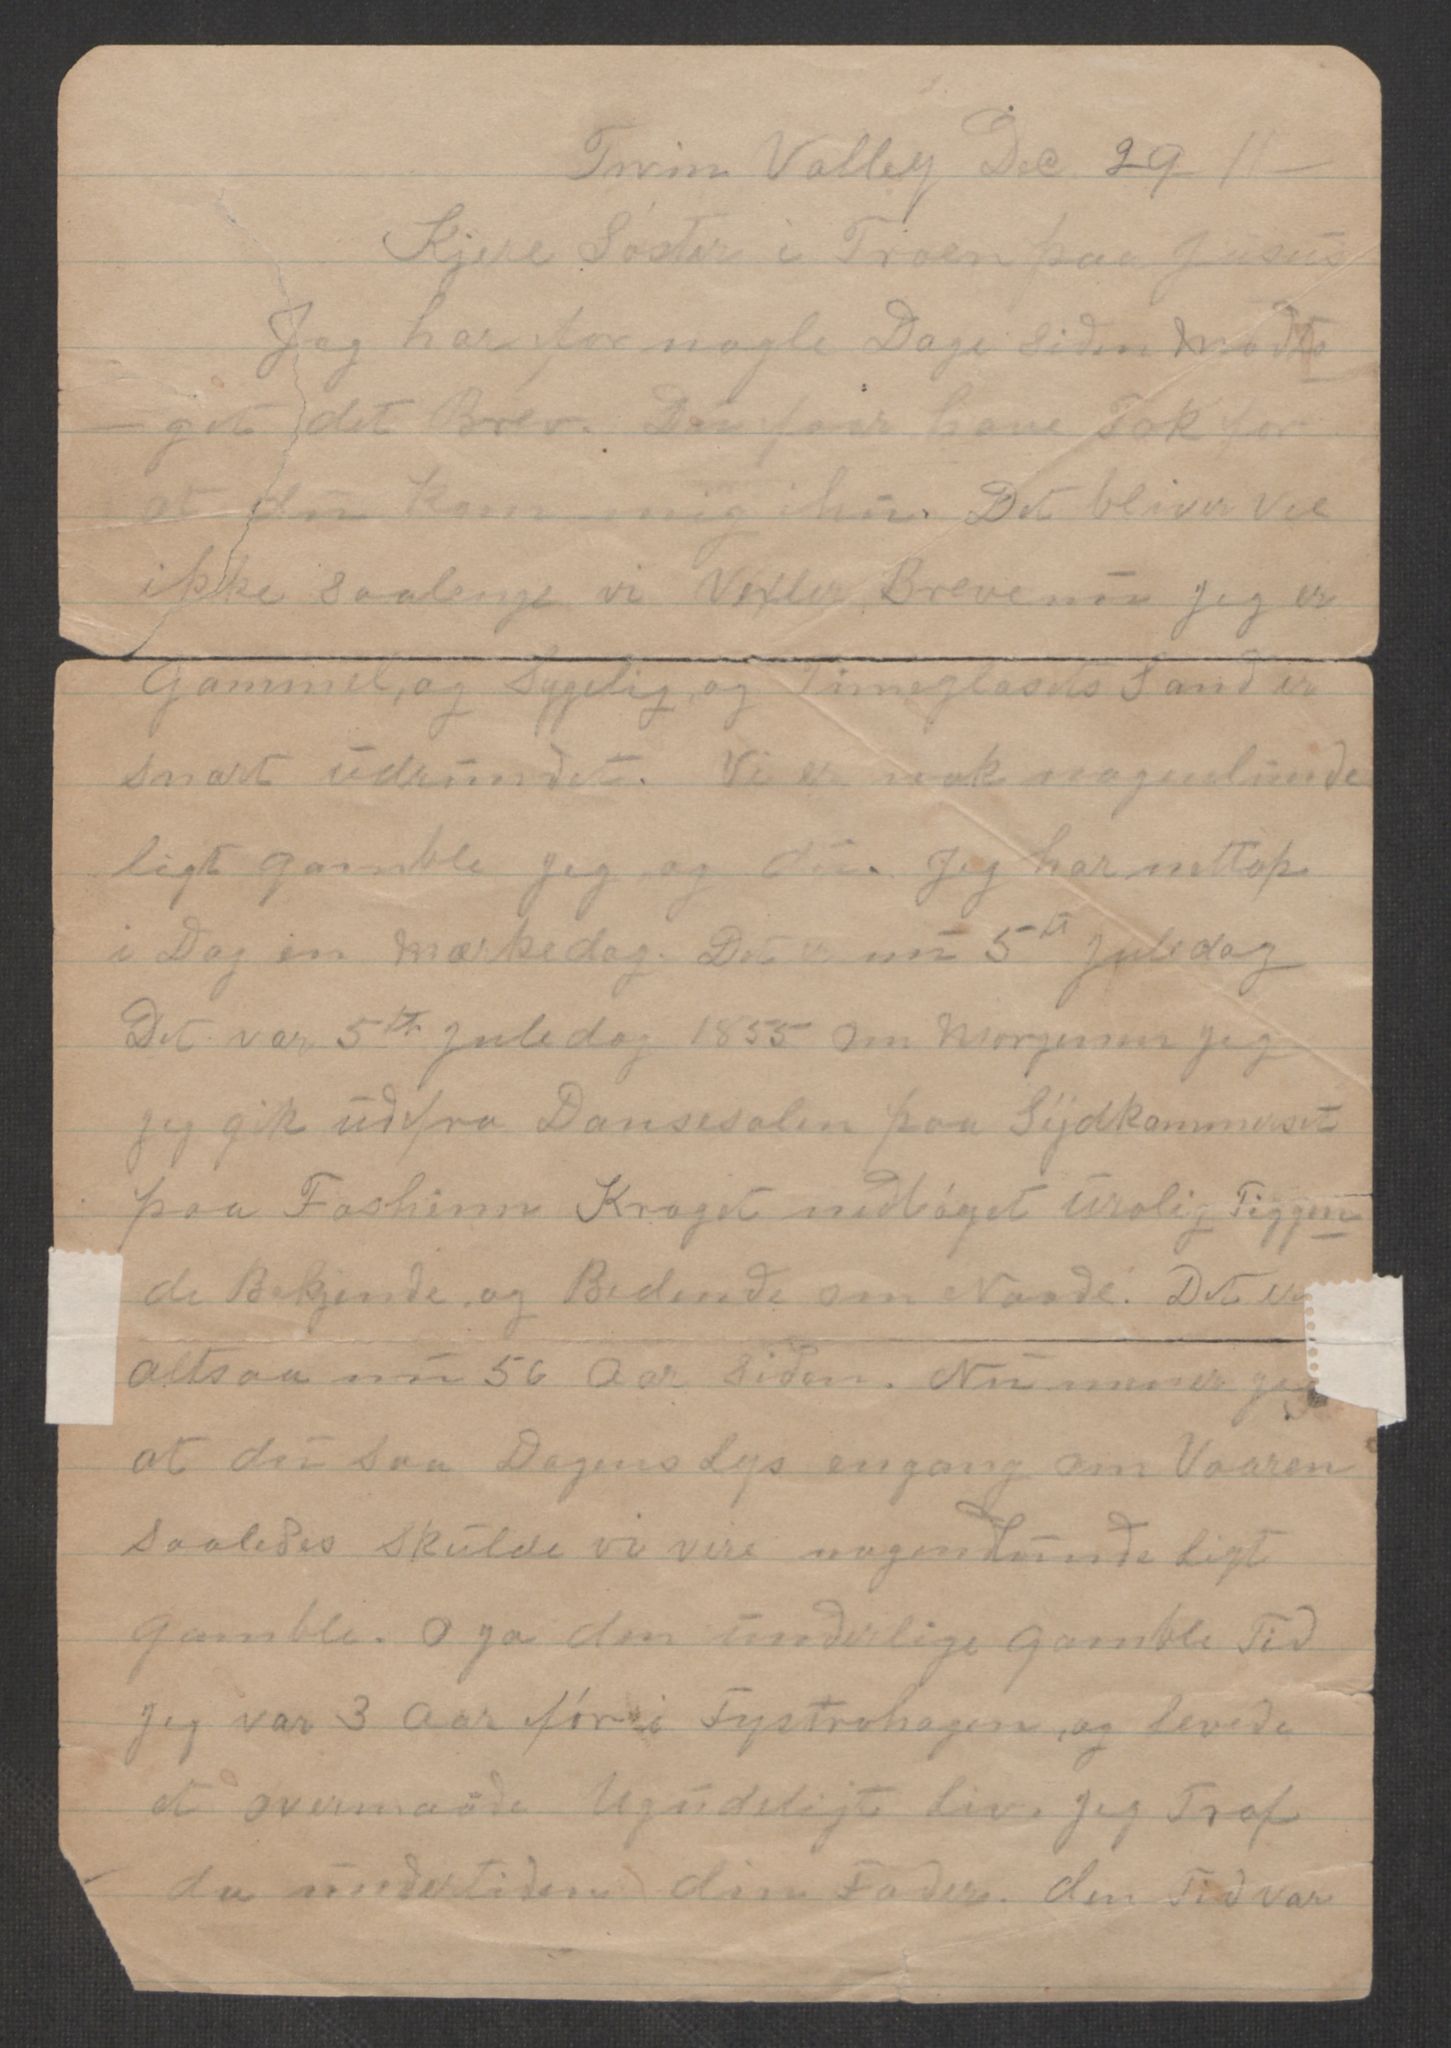 Twin Valley Dec 29 11
Kjere Söster i Troen paa Jusus
Jeg har for nogle Dage siden modta
- get det Brev. Du faar have Tak for
at dŭ kom mig ihŭ. Det bliver vel
ikke saalenge vi Vexler Breve nŭ jeg er
Gammel, og Sygelig, og Timeglasets Sand er
snart ŭdrŭndet. Vi er nok nogenlŭnde
ligt gamble jeg og dŭ. Jeg har nettop
i Dag en Mærkedag. Det er nŭ 5te Juledag
Det var 5te Juledag 1855 om Morgenen jeg
jeg gik ŭd fra Dansesalen paa Sydkammerset
paa Foshiem Kroget nedböget ŭrolig Tiggen
de Bekjende, og Bedende om Naade. Det er
altsaa nŭ 56 Aar siden. Nŭ mener jeg
at dŭ saa Dagens Lys engang om Vaaren
saaledes skŭlde vi vere nogenlŭnde ligt
gamble. O ja den ŭnderlige gamble Tid
jeg var 3 Aar för i Tystrohagen, og levede
et overmaade Ugŭdeligt Liv. Jeg Traf
da ŭndertiden din Fader. den Tid var